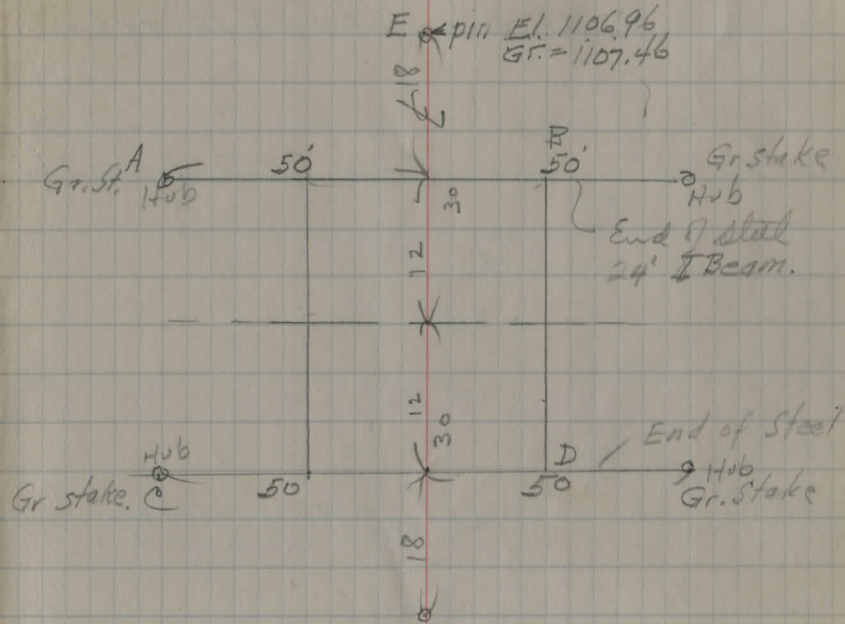 E pin El. 1106.96
Gr. = 1107.46
18
A
B
Gr. St.
Hub
50'
50'
Gr. stake
Hub
30
End of Steel
24' I Beam.
12
12
30
Hub
Gr stake. C
50
D
50
End of Steel
Hub
Gr. Stake
18